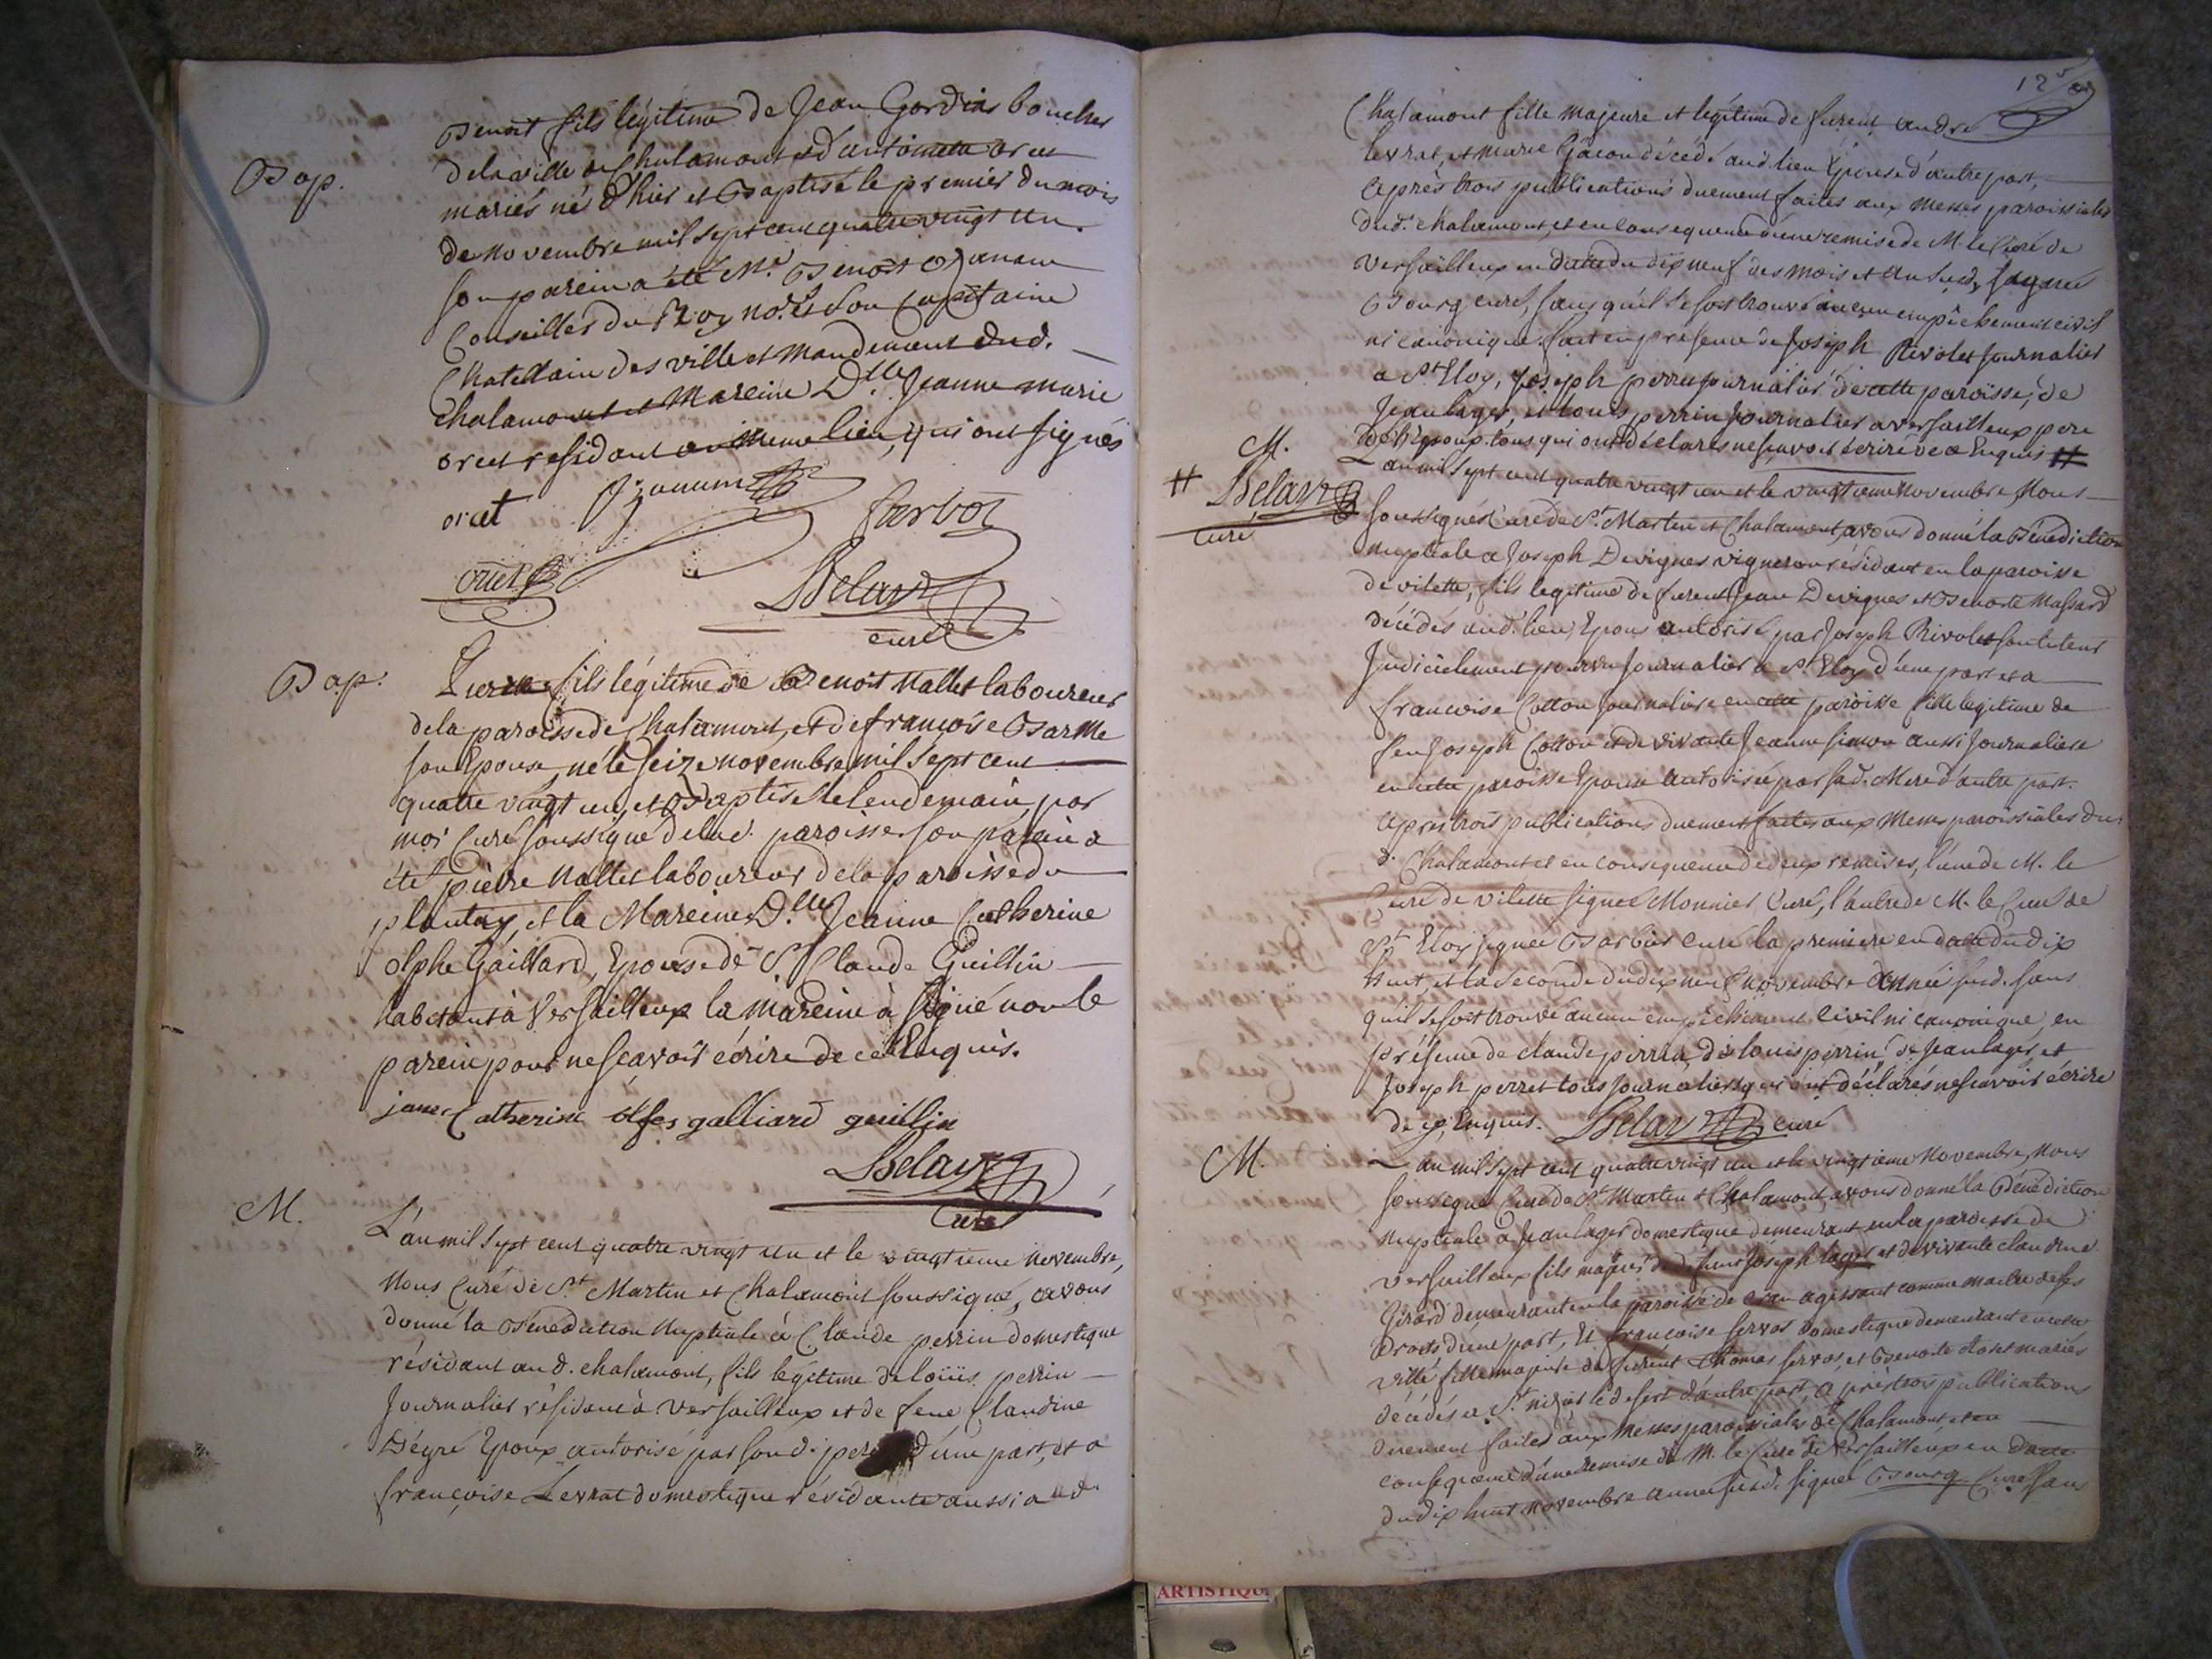 Bap.
Benoit fils légitime de Jean Gordins boucher
de la ville de Chalamont et d'antoinette orcet
mariés né d'hier et Baptisé le premier du mois
de novembre mil sept cent quatre vingt un.
son parein a été Me. Benoit Ozanam
Conseiller du Roy no.re et son Capitaine
Chatellain des ville et Mandement dud.
Chalamont et Mareine D.lle Jeanne marie
orcet residant au meme lieu, qui ont signés
orcet Ozanam
Delaur
curé
Bap.
fils légitime de Benoit Mallet laboureur
de la paroisse de Chalamont, et de francoise Barme
son Epouse, né le seize novembre mil sept cent
quatre vingt un, et Baptisé le lendemain, par
moi Curé soussigné de lad. paroisse son parein a
été pierre Mallet laboureur de la paroisse du
plantay, et la Mareine D.lle Jeanne Catherine
olphe Gaillard, Epouse de S.r Claude Guillin
habitant à Versailleux la mareine à signé non le
parein pour ne scavoir écrire de ce Enquis.
janne Catherine olfes galliard guillin
Delaur
Curé
M.
L'an mil sept cent quatre vingt un et le vingtieme novembre,
Nous Curé de S.t Martin et Chalamont soussigné, avons
donné la Bénédiction Nuptiale à Claude perrin domestique
résidant aud. chalamont, fils légitime de loüis perrin
Journalier résidant à versailleux et de feue Claudine
Dégré Epoux autorisé par sond. pere d'une part, et a
francoise Levrat domestique résidante aussi aud.
125
Chalamont fille majeure et légitime de furent andré
levrat, et marie Gacon décédé aud. lieu Epouse d'autre part,
Après trois publications duement faites aux Messes paroissiales
dud. chalamont, et en consequence d'une remise de M. le Curé de
versailleux en datte du dix neuf des mois et an susd. signée
Bourg curé, sans qu'il se soit trouvé aucun empêchement civil
ni canonique. fait en présence de Joseph Rivolet Journalier
a S.t Eloy, Joseph perret Journalier de cette paroisse, de
Jean lager, et Louis perrin Journalier a versailleux pere
de l'Epoux tous qui ont déclarés ne scavoir écrire de ce Enquis #
M.
# Delaur
curé
L'an mil sept cent quatre vingt un et le vingtieme Novembre, Nous
soussigné Curé de S.t Martin et Chalamont, avons donné la Bénédiction
nuptiale a Joseph Devignes vigneron résidant en la paroisse
de vilette, fils legitime de furent Jean Devignes et Benoite Massard
décédés aud. lieu, Epoux autorisé par Joseph Rivolet son tuteur
Judicielement pourvu Journalier a S.t Eloy d'une part et a
francoise Cotton Journaliere en cette paroisse fille legitime de
feu Joseph Cotton et de vivante Jeanne simon aussi Journaliere
en cette paroisse Epouse autorisée par sad. Mere d'autre part.
après trois publications duement faites aux Messes paroissiales du
d. Chalamont et en consequence de deux remises, l'une de M. le
Curé de vilette signée Monnier Curé, l'autre de M. le Curé de
S.t Eloy signée Barbier curé la premiere en datte du dix
huit, et la seconde du dix neuf novembre année susd. sans
qu'il se soit trouvé aucun empêchement civil ni canonique, en
présence de claude perrin, de louis perrin, de Jean lager, et
Joseph perret tous Journaliers qui ont déclarés ne scavoir écrire
de ce Enquis. Delaur curé
M.
L'an mil sept cent quatre vingt un et le vingtieme Novembre, Nous
soussigné Curé de S.t Martin et Chalamont, avons donné la Bénédiction
nuptiale à Jean lager domestique demeurant en la paroisse de
versailleux fils majeur de defunt Joseph lager et de vivante claudine
Girard demeurant en la paroisse de Cran agissant comme maitre de ses
droits d'une part, Et francoise servos domestique demeurant en cette
ville fille majeure de furent Thomas servos, et Benoite mariés
décédés a S.t nizier le desert d'autre part, après trois publications
duement faites aux Messes paroissiales de Chalamont et en
consequence d'une remise de M. le Curé de versailleux en datte
du dix huit novembre année susd. signée Bourg Curé sans
ARTISTIQUE